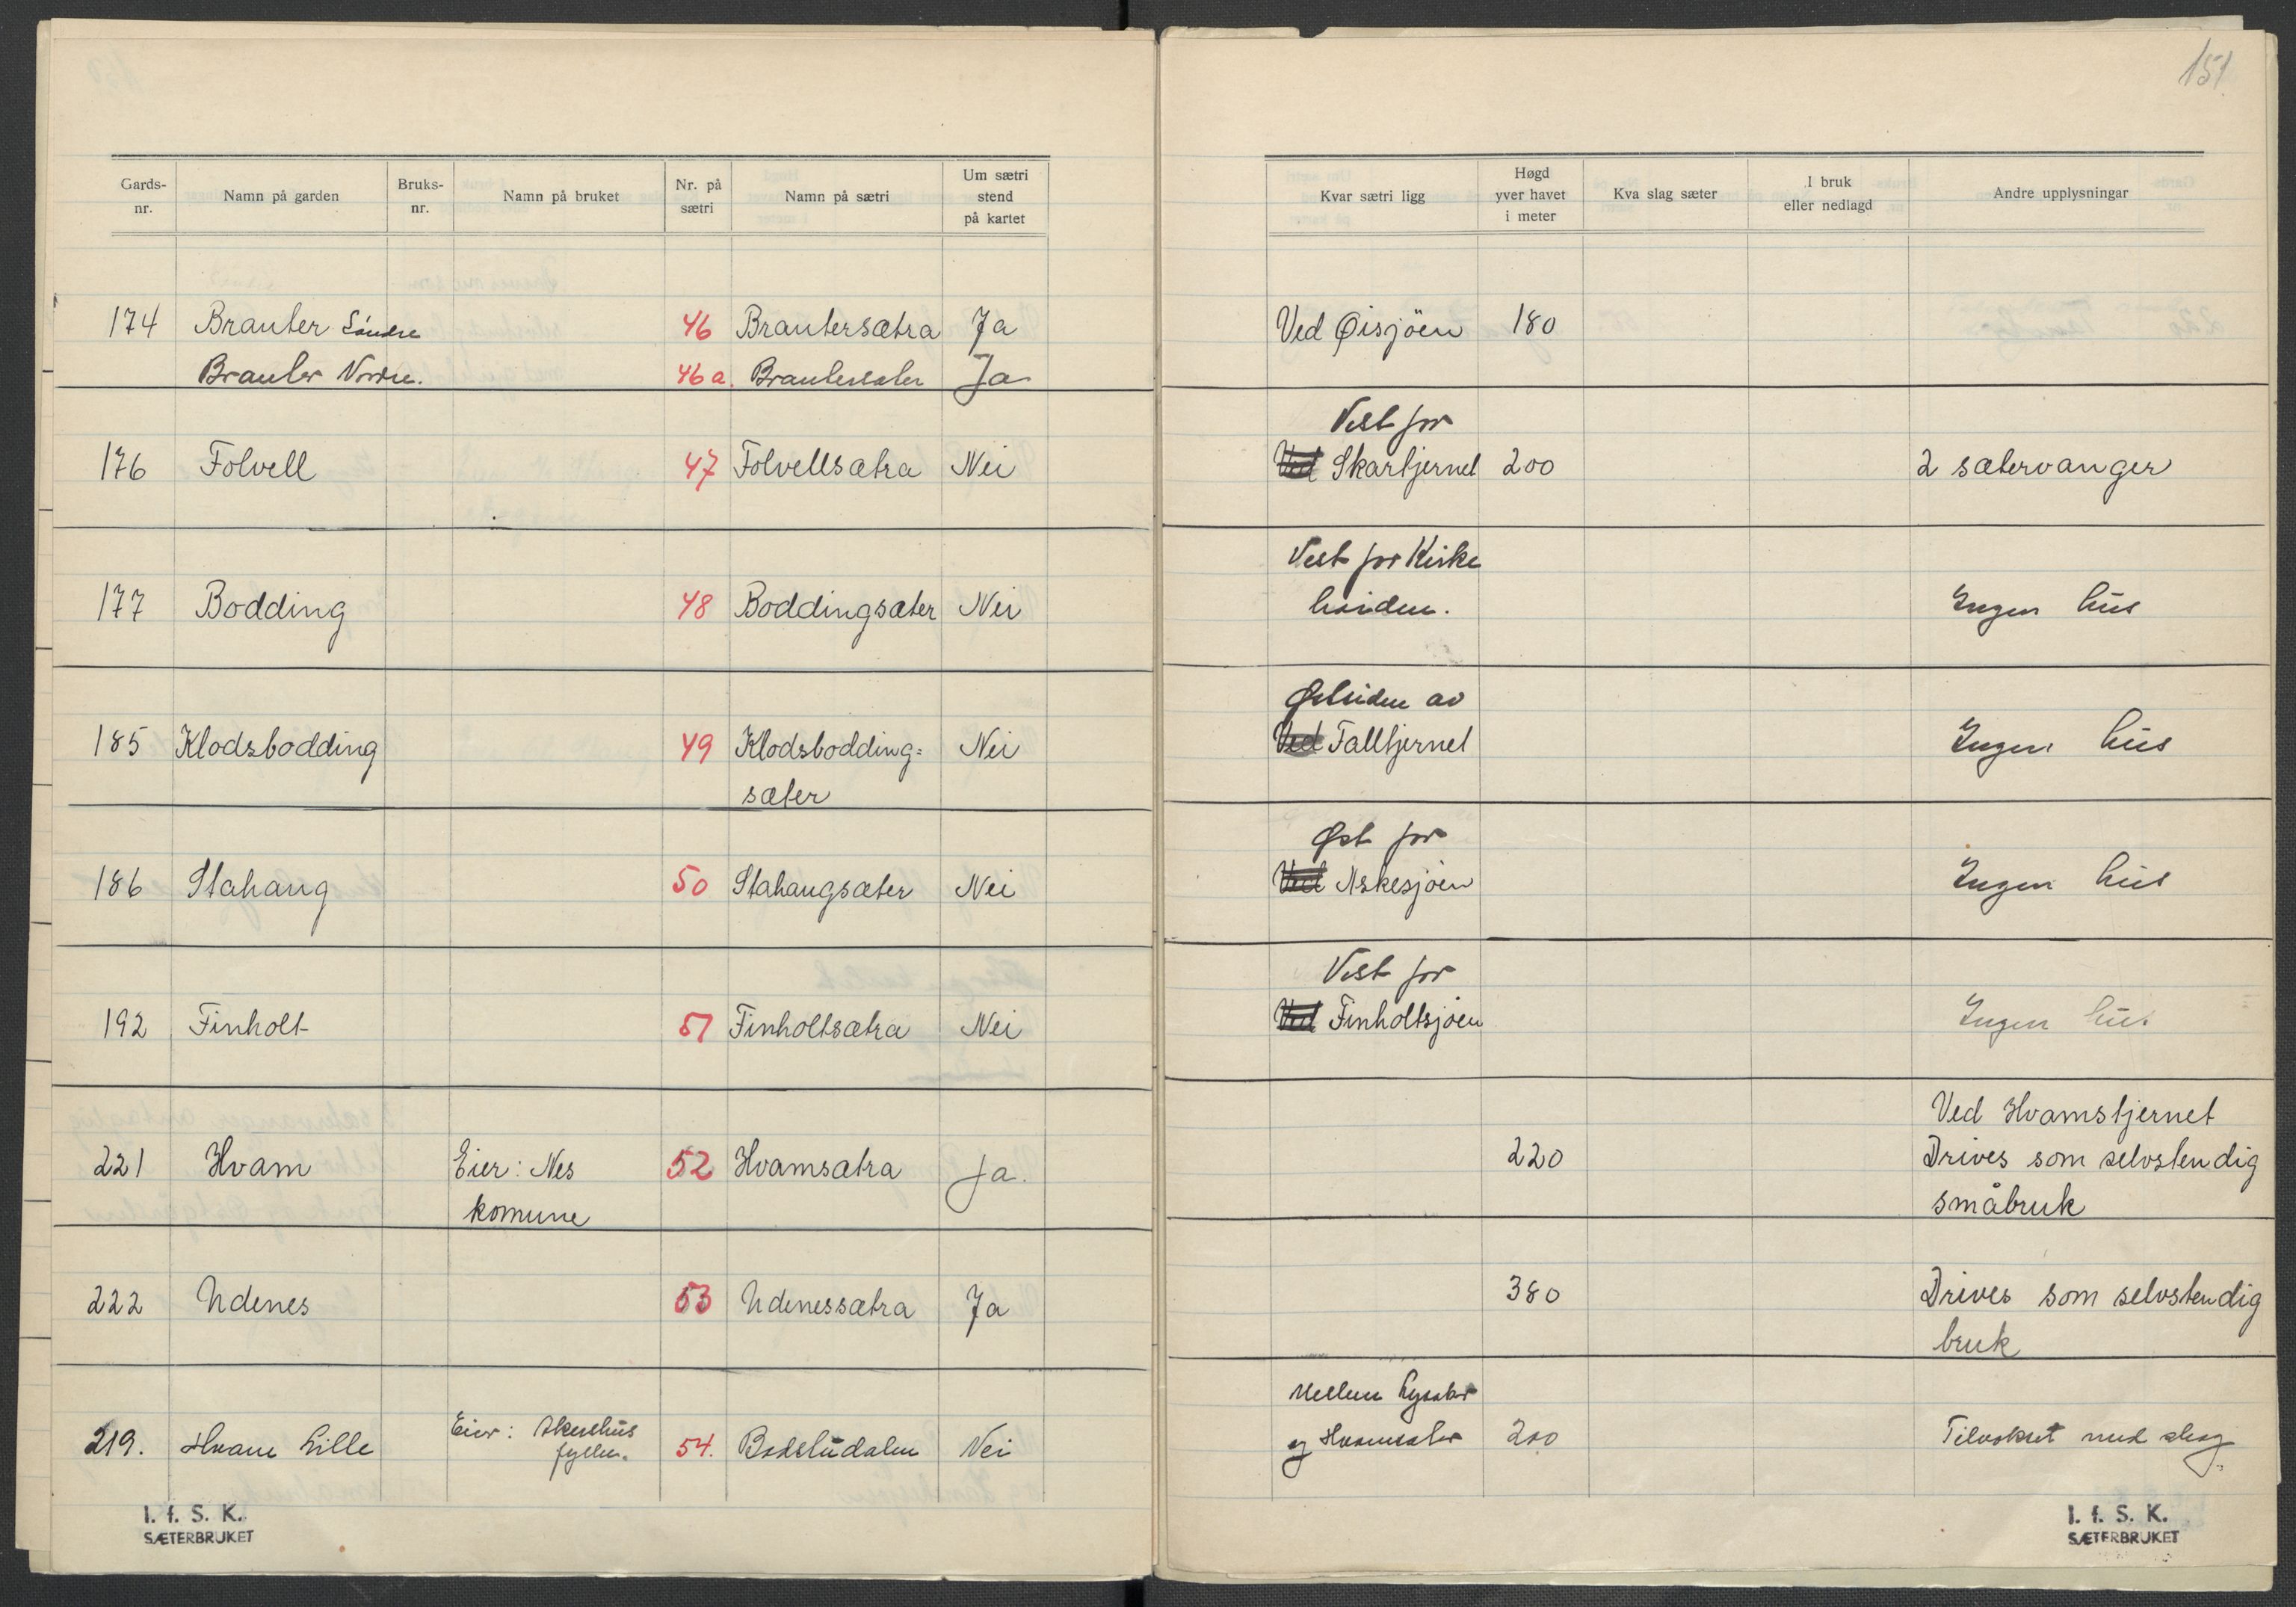 151
Gards-nr. Namn på garden Bruks-nr. Namn på bruket Nr. på sætri Namn på sætri Um sætri stend på kartet
Kvar sætri ligg Høgd yver havet i meter Kva slag sæter I bruk eller nedlagd Andre upplysningar
174 Brauter Søndre 46 Brautersætra Ja Ved Øisjöen 180
Brauter Nordre. 46a. Brautersæter Ja
Vest for
176 Folvell 47 Folvellsætra Nei Ved Skartjernet 200 2 sætervanger
Vest for Kirke
177 Bodding 48 Boddingsæter Nei Ingen hus
Østsiden av
185 Klodsbodding 49 Klodsbodding= Nei Ved Falltjernet Ingen hus
sæter
Øst for
186 Stahaug 50 Stahaugsæter Nei Ved Askesjöen Ingen hus
Vest for
192 Finholt 51 Finholtsætra Nei Ved Finholtsjöen Ingen hus
Ved Hvamstjernet
221 Hvam Eier: Nes 52 Hvamsætra Ja. 220 Drives som selvstendig
komune småbruk
222 Udenes 53 Udenessætra Ja 380 Drives som selvstendig
bruk
Mellem
219. Hvam Lille Eier: Akershus 54. Badstudalen Nei og Hvamsæter 200 Tilvokset med skog
I. f. S. K.
SÆTERBRUKET
I. f. S. K.
SÆTERBRUKET